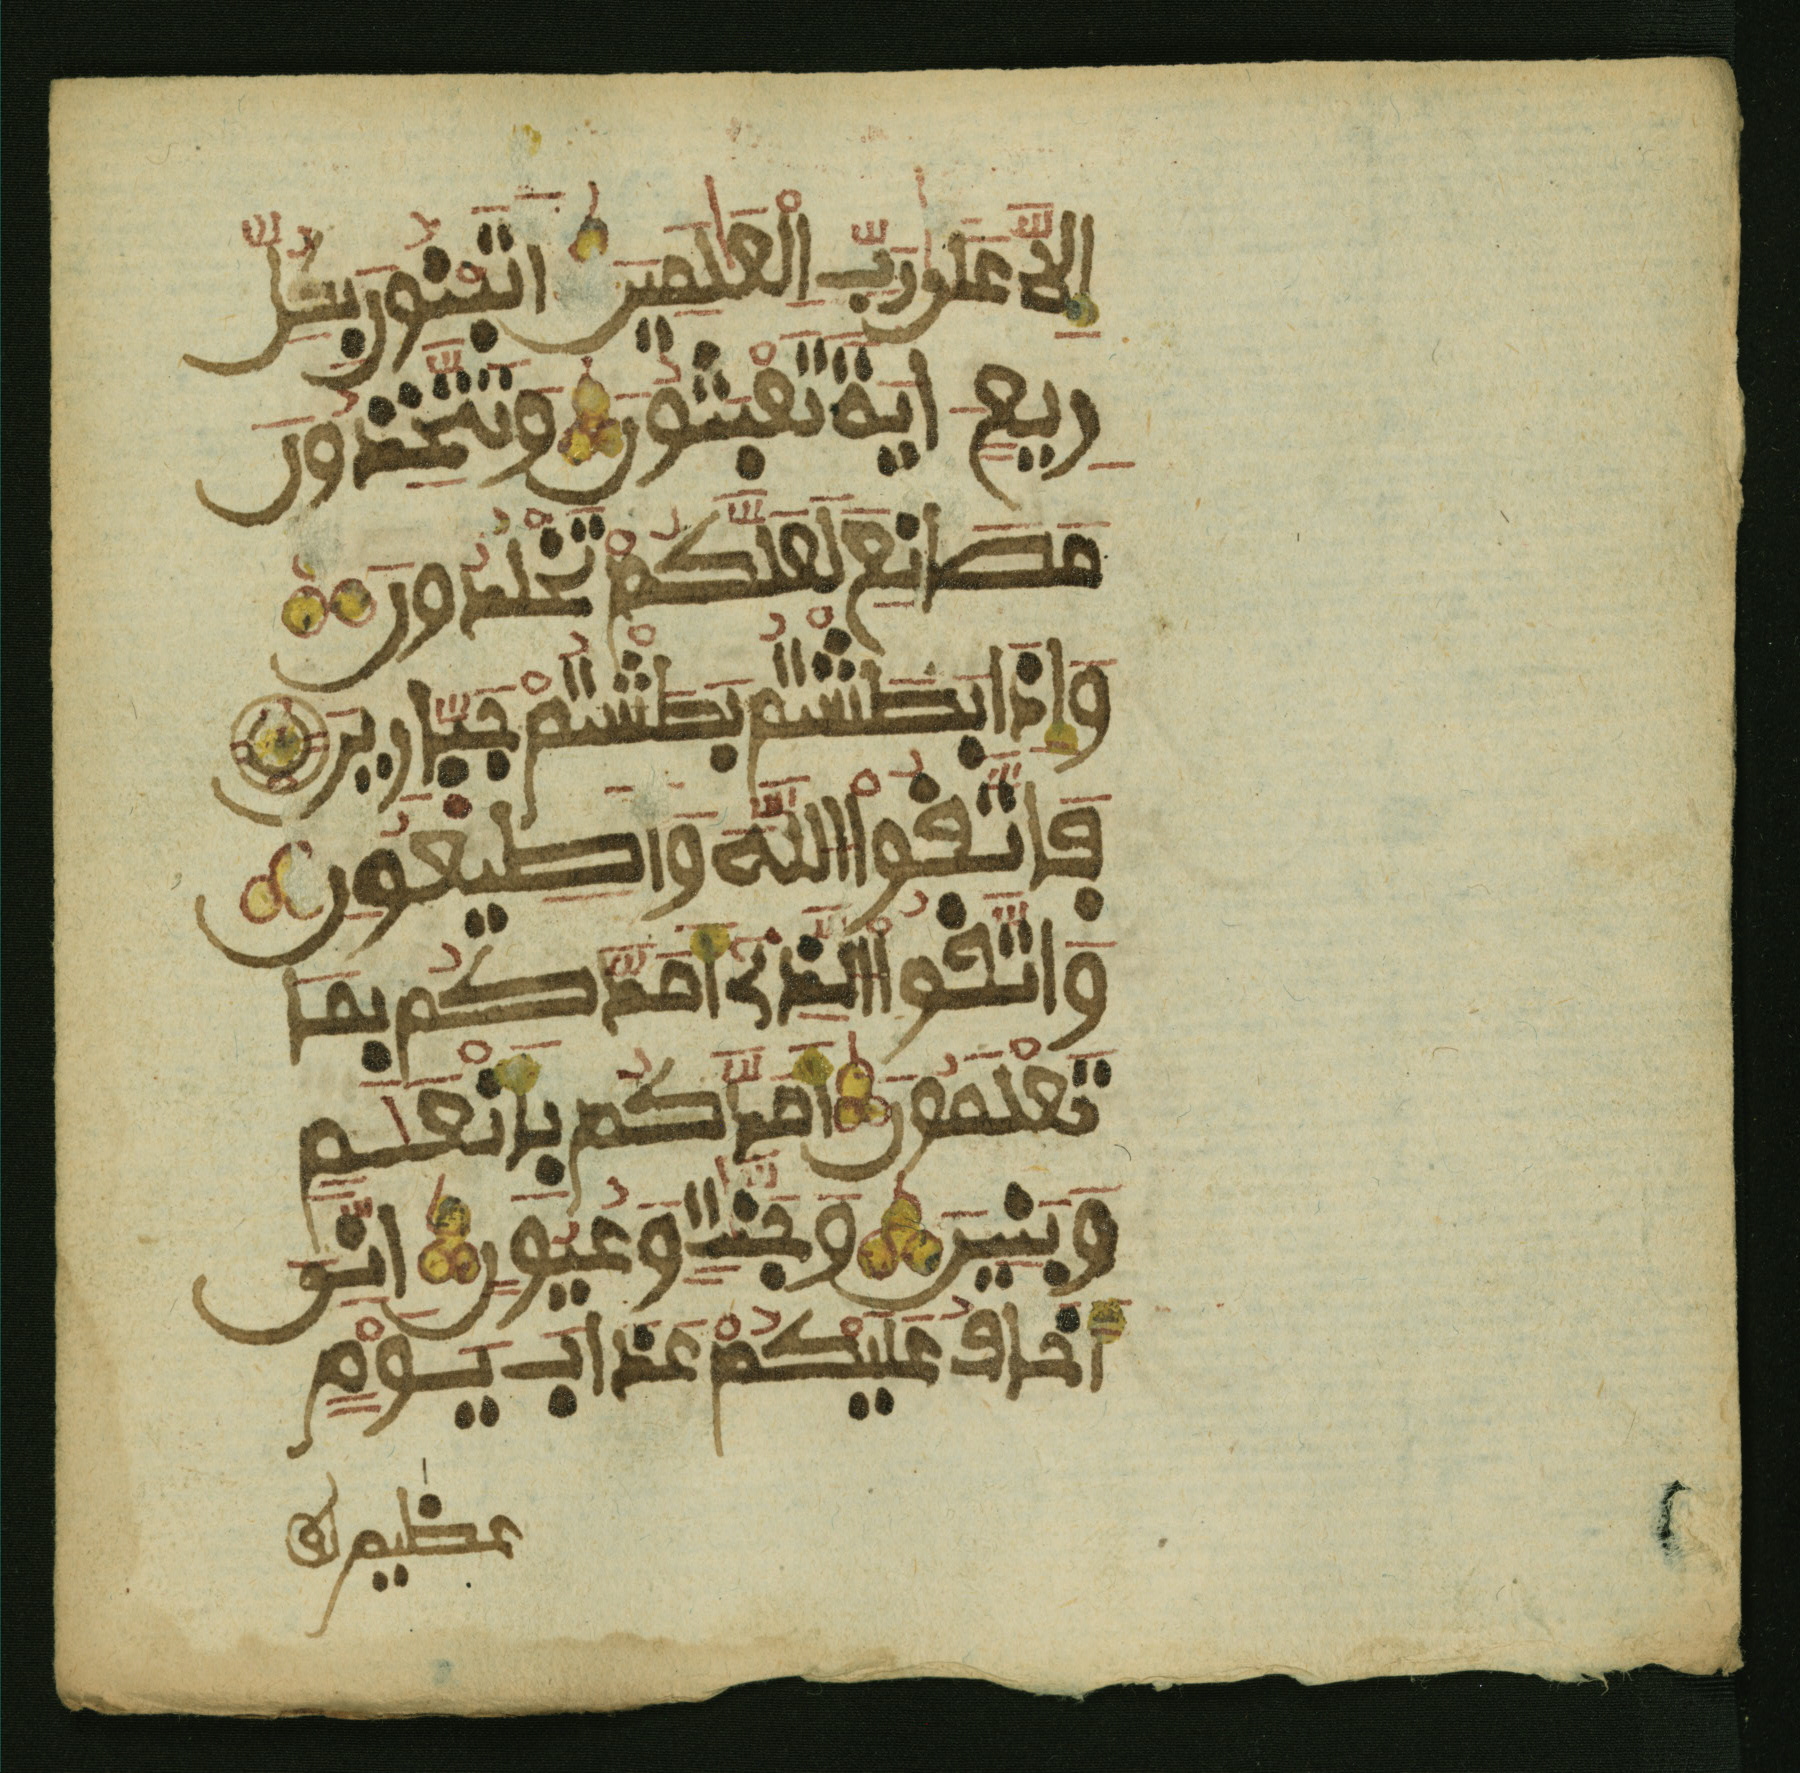 الى على رب العلمين اتبنون بكل
ريع اية تعبثون وتتخذون
مصانع لعلكم تخلدون
واذا بطشتم بطشتم جبارين
فاتقوا الله واطيعون
واتقوا الذي امدكم بما
تعلمون امدكم بانعم
وبنين وجنت وعيون انى
اخاف عليكم عذاب يوم
عظيم